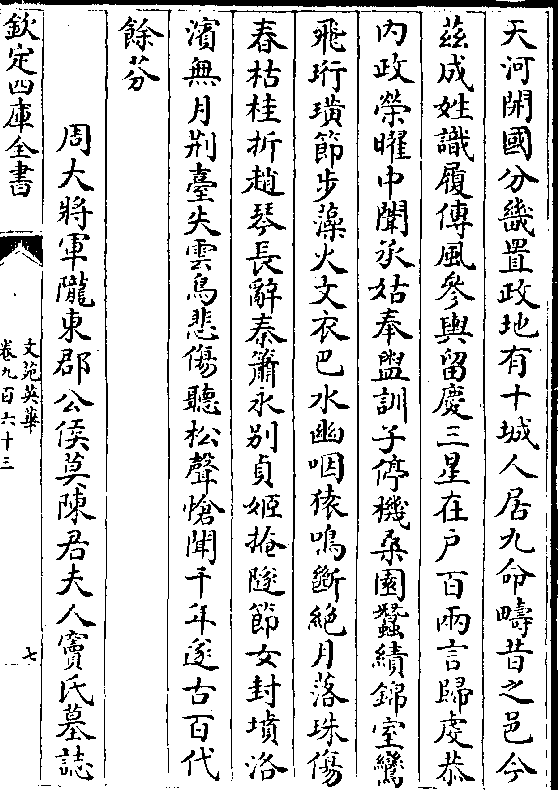 天河開國分畿置政地有十城人居九命疇昔之邑今
茲成姓識履傳風參輿留慶三星在戶百兩言歸虔恭
内政榮曜中闈承姑奉盥訓子停機桑園蠶績錦室鸞
飛珩璜節步藻火文衣巴水幽咽猿鳴斷絶月落珠傷
春枯桂折趙琴長辭秦簫永别貞姬掩隧節女封墳洛
濱無月荆臺失雲鳥悲傷聽松聲愴聞千年遂古百代
餘芬
周大將軍隴東郡公侯莫陳君夫人竇氏墓誌
欽定四庫全書
文苑英華
卷九百六十三
七